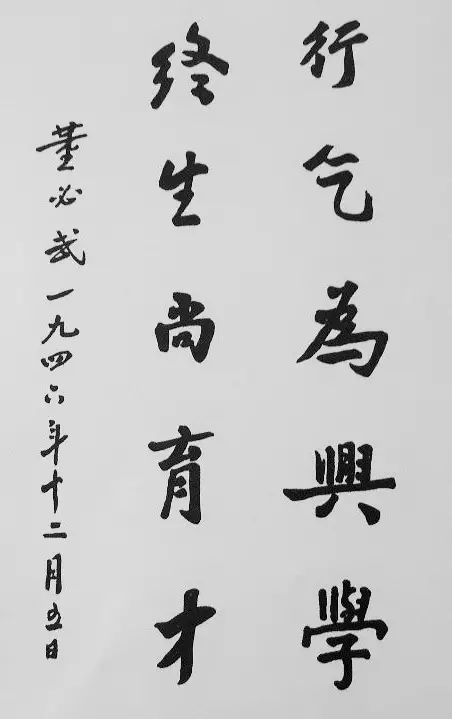 行乞為興學
終生尚育才
董必武一九四六年十二月五日